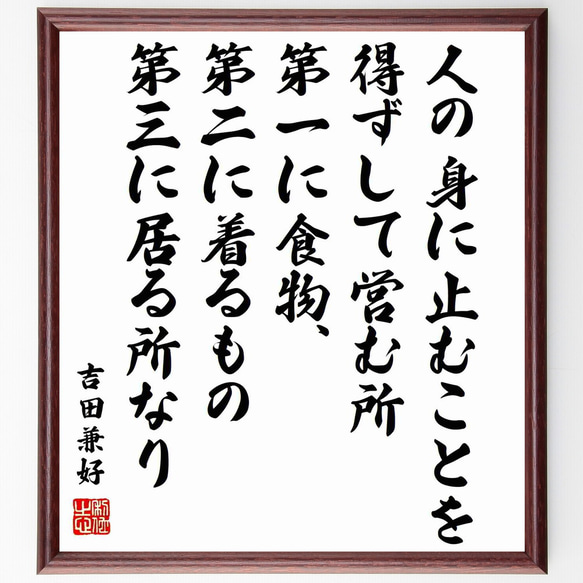 人の身に止むことを
得ずして営む所
第一に食物、
第二に着るもの
第三に居る所なり
吉田兼好